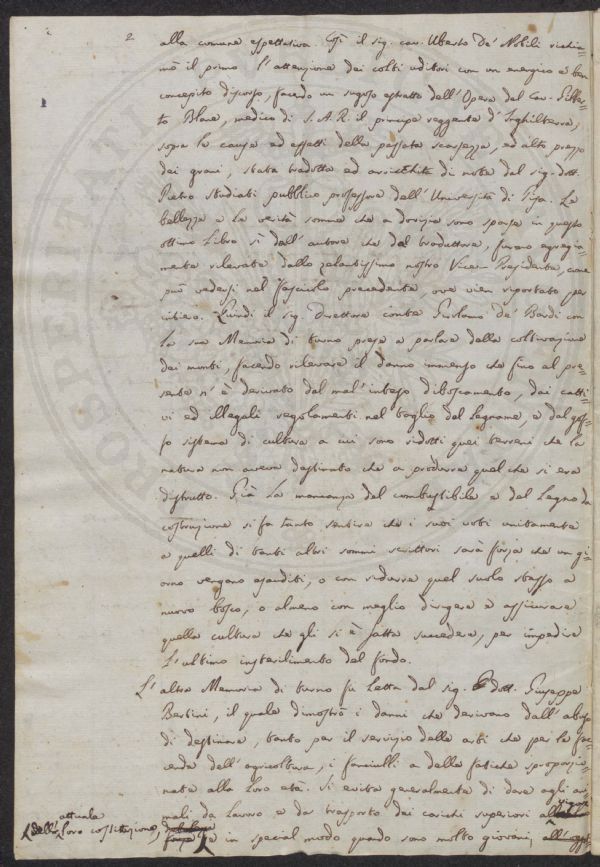 2
alla comune espettativa. Così il sig. cav. Uberto de' Nobili richia-
mò il primo l'attenzione dei colti uditori con un energico e ben
concepito discorso, facendo un sugoso estratto dell'Opera del Cav. Gilber-
to Blane, medico di S. A. R. il principe reggente d'Inghilterra,
sopra le cause ed effetti della passata scarsezza, ed alto prezzo
dei grani, stata tradotta ed arricchita di note dal sig. dott.
Pietro Studiati pubblico professore dell'Università di Pisa. Le
bellezze e le verità somme che a dovizia sono sparse in questo
ottimo Libro sì dall'autore che dal traduttore, furono egregia-
mente rilevate dallo zelantissimo nostro Vice-Presidente, come
può vedersi nel fascicolo precedente, ove vien riportato per
intiero. Quindi il sig. Direttore conte Girolamo de' Bardi con
la sua Memoria di turno prese a parlare della coltivazione
dei monti, facendo rilevare il danno immenso che fino al pre-
sente n'è derivato dal mal'inteso diboscamento, dai catti-
vi ed illegali regolamenti nel taglio del Legname, e dal gof-
fo sistema di cultura a cui sono ridotti quei terreni che la
natura non aveva destinato che a produrre quel che si era
distrutto. Già la mancanza del combustibile e del Legno da
costruzione si fa tanto sentire che i suoi voti unitamente
a quelli di tanti altri sommi scrittori sarà forza che un gi-
orno vengano esauditi, o con ridurre quel suolo stesso a
nuovo bosco, o almeno con meglio dirigere e assicurare
quella cultura che gli si è fatta succedere, per impedire
l'ultimo insterilimento del fondo.
L'altra Memoria di turno fu Letta dal sig. dott. Giuseppe
Bertini, il quale dimostrò i danni che derivano dall'abuso
di destinare, tanto per il servizio delle arti che per le fac-
cende dell'agricoltura, i fanciulli a delle fatiche sproporzio-
nate alla Loro età. Si evita generalmente di dare agli ani-
mali da Lavoro e da trasporto dei carichi superiori
attuale
dell' Loro costituzione,
e in special modo quando sono molto giovani,
ROSPERITATI